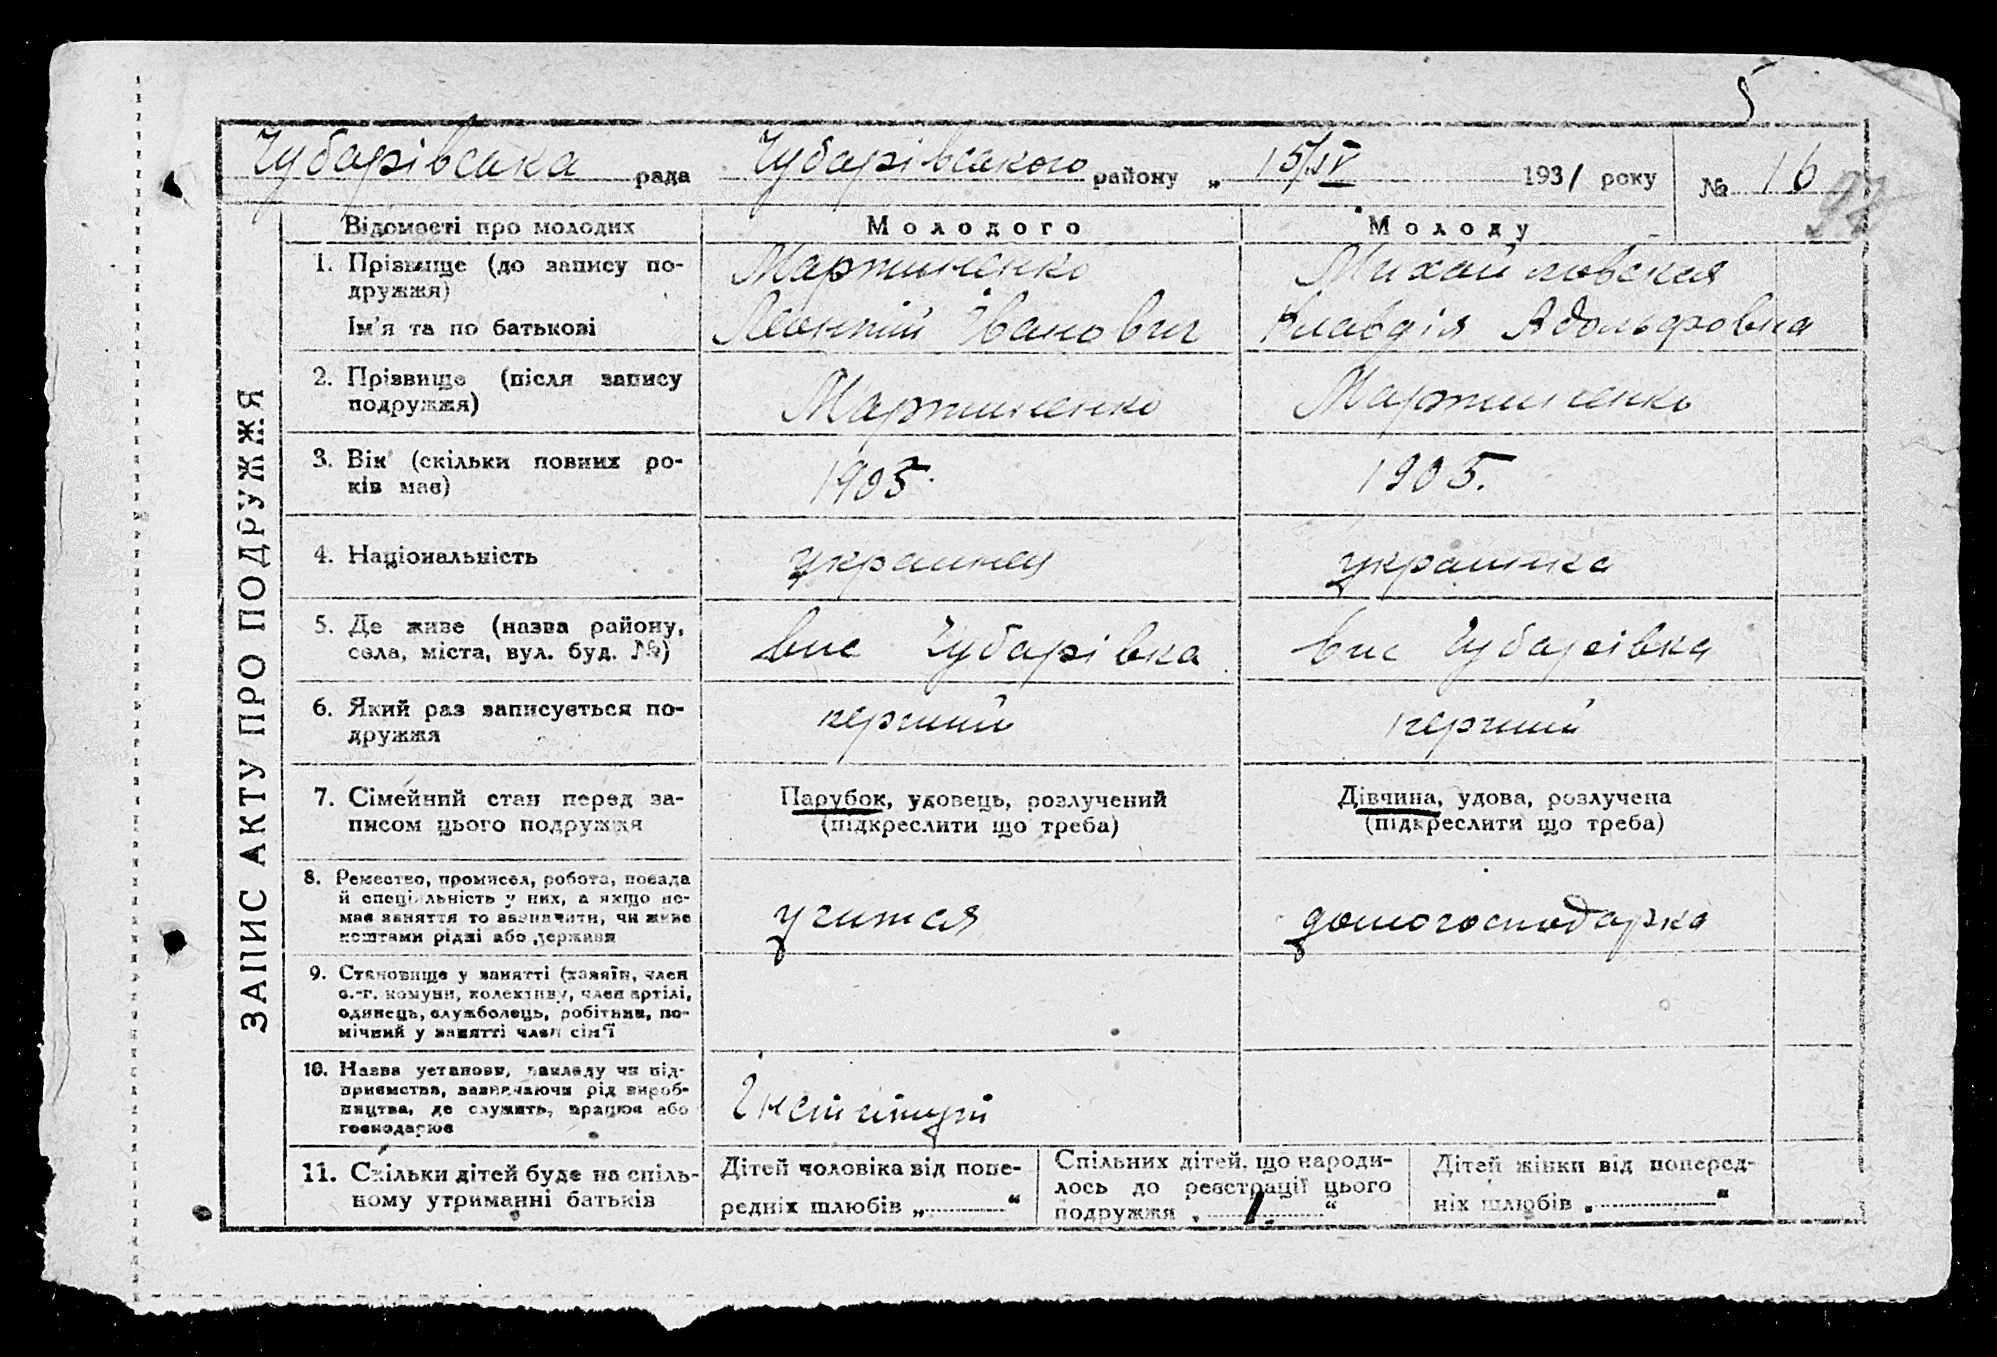 5
Чубарівська рада Чубарівського району „ 15/IV 1931 року № 16
97
ЗАПИС АКТУ ПРО ПОДРУЖЖЯ
Відомості про молодих
Молодого
Молоду
1. Прізвище (до запису по-
дружжя)
Ім'я та по батькові
Мартиненко
Леонтій Іванович
Михайловская
Клавдія Адольфовна
2. Прізвище (після запису
подружжя)
Мартиненко
Мартиненко
3. Вік (скільки повних ро-
ків має)
1905
1905.
4. Національність
украинец
украинка
5. Де живе (назва району,
села, міста, вул. буд. №)
вис Чубарівка
вис Чубарівка
6. Який раз записується по-
дружжя
перший
перший
7. Сімейний стан перед за-
писом цього подружжя
Парубок, удовець, розлучений
(підкреслити що треба)
Дівчина, удова, розлучена
(підкреслити що треба)
8. Ремество, промисел, робота, посада
й спеціяльність у них, а якщо не-
має заняття то зазначити, чи живе
коштами рідні або держави
учится
домогосподарка
9. Становище у занятті (хазяїн, член
с.-г. комуни, колективу, член артілі,
одинець, службовець, робітник, по-
мічний у занятті член сім'ї
10. Назва установи, закладу чи під-
приємства, зазначаючи рід вироб-
ництва, де служить, працює або
господарює
Інститут
11. Скільки дітей буде на спіль-
ному утриманні батьків
Дітей чоловіка від попе-
редніх шлюбів „ “
Спільних дітей, що народи-
лось до реєстрації цього
подружжя „ 1. “
Дітей жінки від поперед-
ніх шлюбів „ “